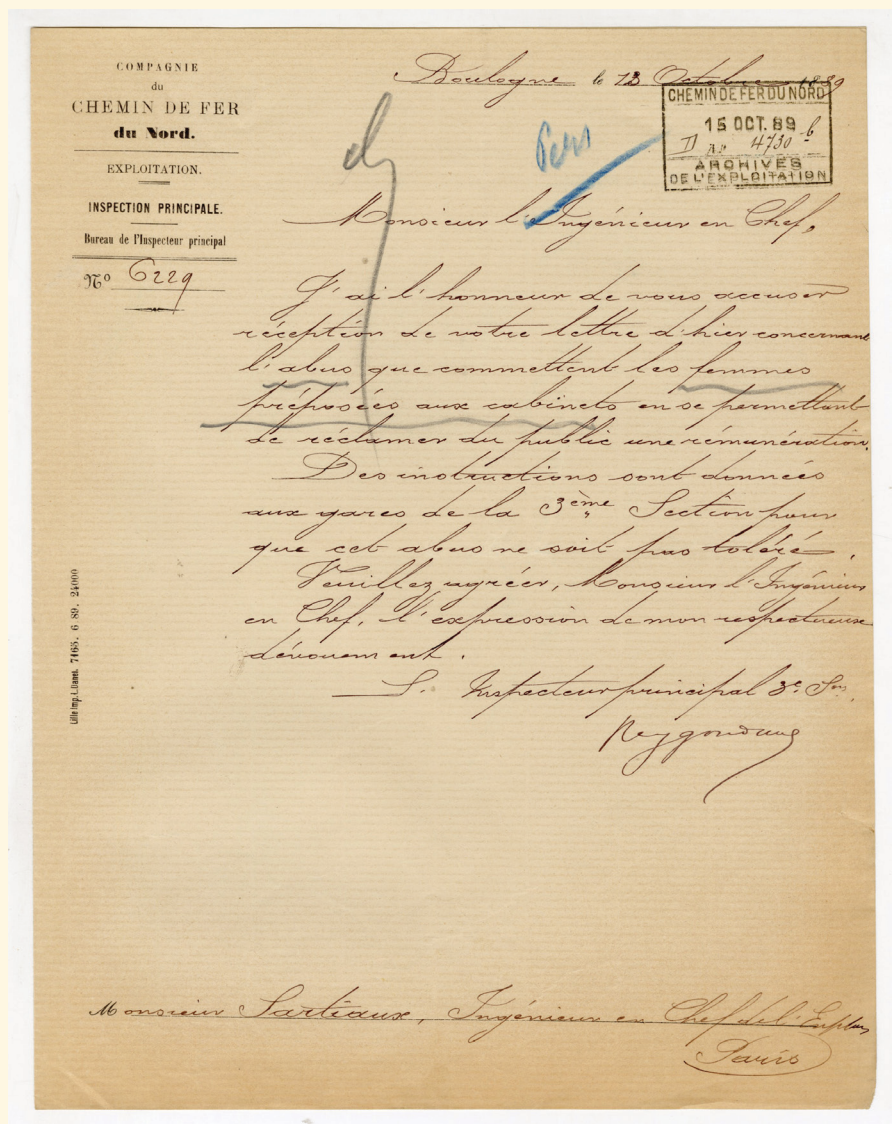 COMPAGNIE
du
CHEMIN DE FER
du Nord.
EXPLOITATION.
INSPECTION PRINCIPALE.
Bureau de l'Inspecteur principal
N° 6229
Boulogne le 13 Octobre 1889
CHEMIN DE FER DU NORD
15 OCT. 89
4730
ARCHIVES
DE L'EXPLOITATION
Monsieur l'Ingénieur en Chef,
J'ai l'honneur de vous accuser
réception de votre lettre d'hier concernant
l'abus que commettent les femmes
préposées aux cabinets en se permettant
de réclamer du public une rémunération.
Des instructions sont données
aux gares de la 3ème Section pour
que cet abus ne soit pas toléré.
Veuillez agréer, Monsieur l'Ingénieur
en Chef, l'expression de mon respectueux
dévouement.
L'Inspecteur principal 3e Son
Lille Imp. L. Danel. 7465. 6 89. 24000
Monsieur Sartiaux, Ingénieur en Chef de l'Explon
Paris